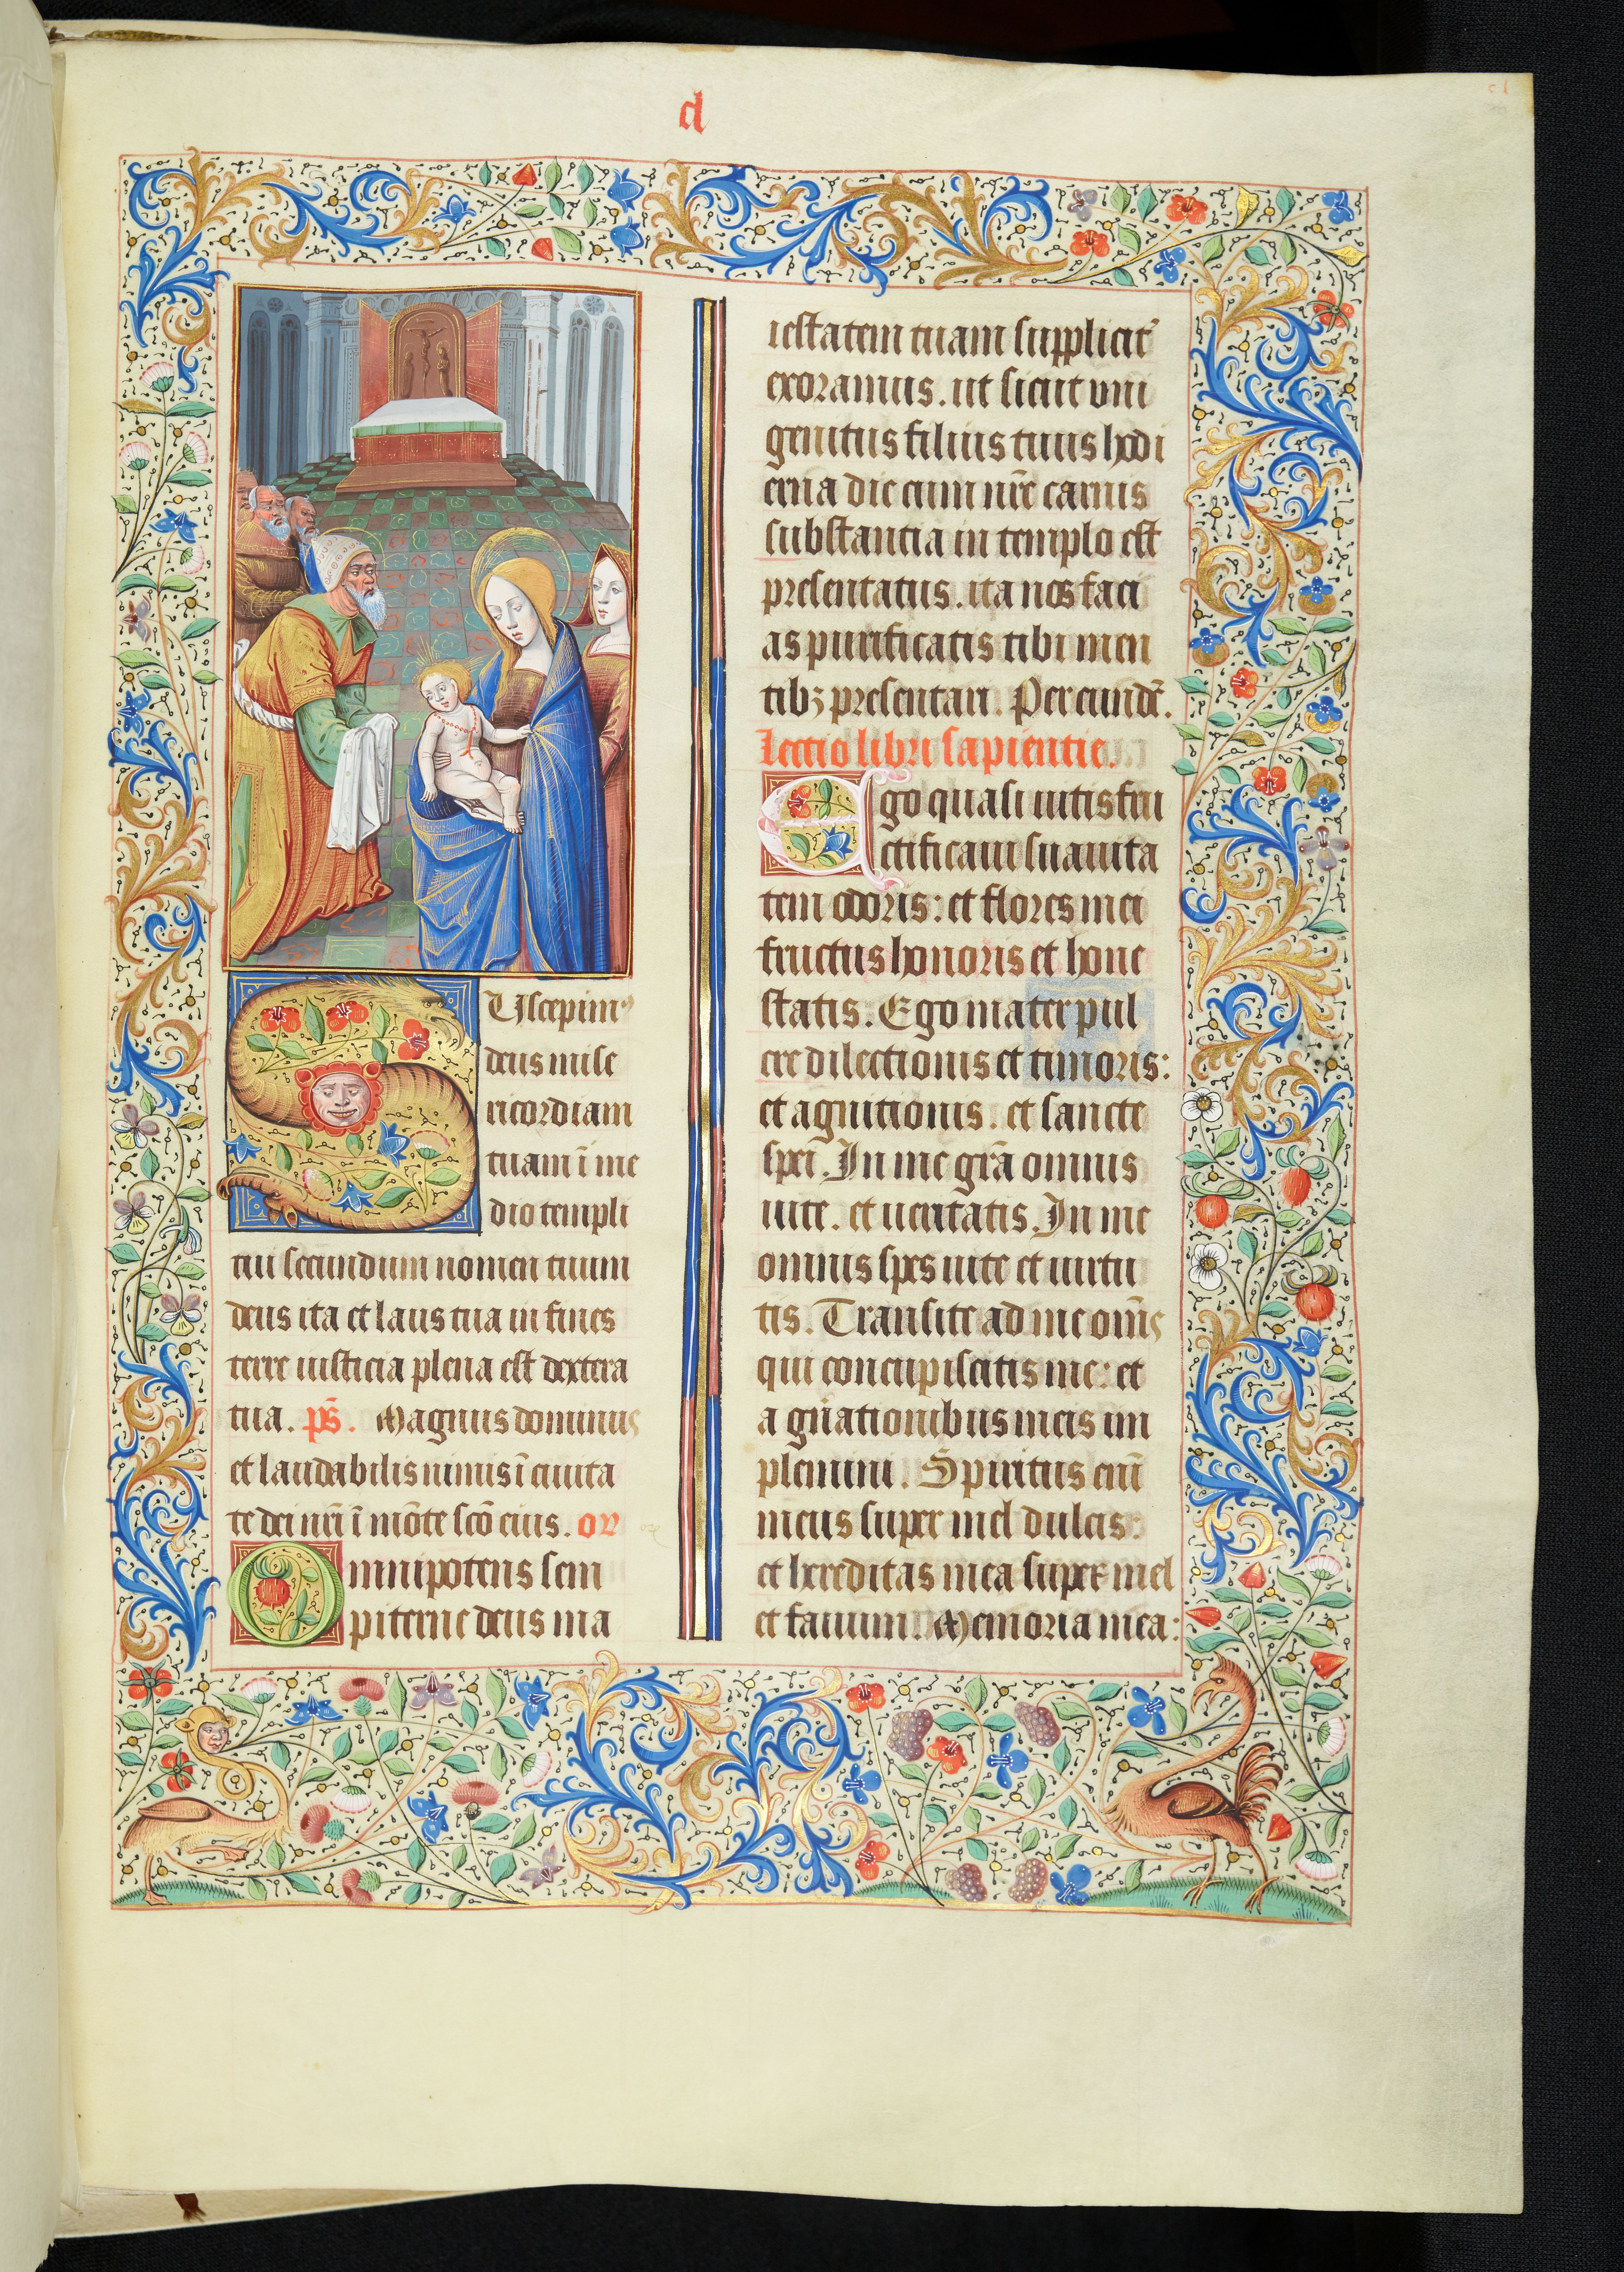 d
SUscepim⁹
deus mise
ricordiam
tuam ī me
dio templi
tui secundum nomen tuum
deus ita et laus tua in fines
terre iusticia plena est dextera
tua. ps̄. Magnus dominus
et laudabilis nimis ī ciuita
te dei nr̄i ī mōte scō eius. or̄
Omnipotens sem
piterne deus ma
iestatem tuam supplicit᷑
exoramus. ut sicut vni
genitus filius tuus hodi
erna die cum nr̄e carnis
substantia in templo est
presentatus. ita nos faci
as purificatis tibi men
tibꝫ presentari. Per eundē.
Lectio libri sapientie.
Ego quasi uitis fru
ctificaui suauita
tem odoris: et flores mei
fructus honoris et hone
statis. Ego mater pul
cre dilectionis et timoris:
et agnitionis. et sancte
spei. In me gr̄a omnis
uite. et ueritatis. In me
omnis spes uite et uirtu
tis. Transite ad me omēs
qui concupiscitis me: et
a gn̄ationibus meis im
plemini. Spiritus enī
meus super mel dulcis:
et hereditas mea super mel
et fauum. Memoria mea: